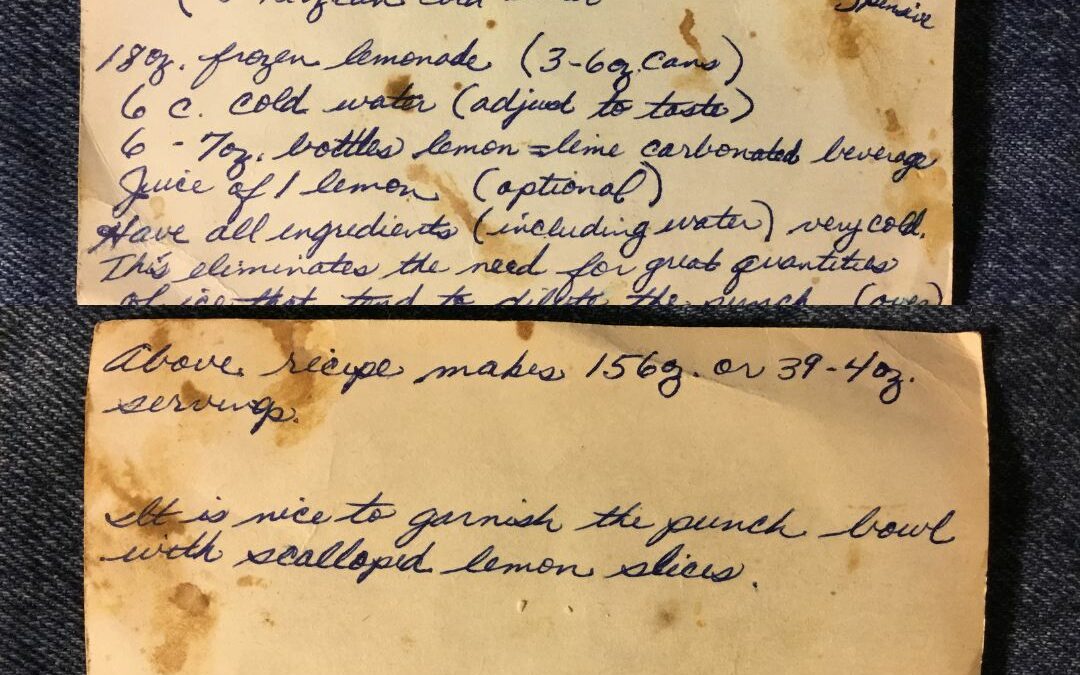 cold
18oz. frozen lemonade (3-6oz. cans)
6 c. cold water (adjust to taste)
6 - 7oz. bottles lemon=lime carbonated beverage
Juice of 1 lemon (optional)
Have all ingredients (including water) very cold.
This eliminates the need for great quantities
of ice that tend to dilute the punch (over)
Above recipe makes 156oz. or 39-4oz.
servings.
It is nice to garnish the punch bowl
with scalloped lemon slices.